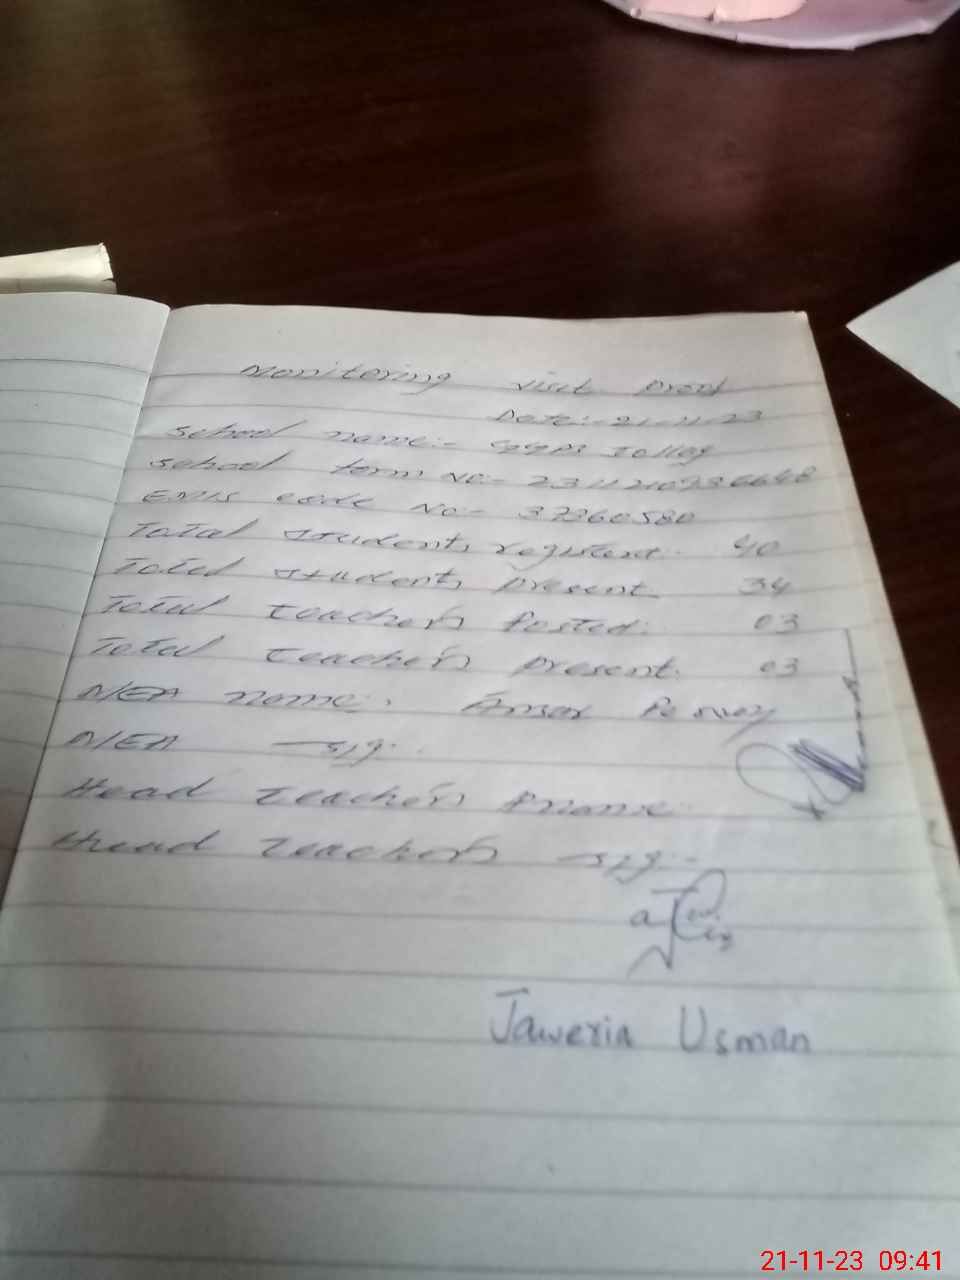 Monitoring visit proof
Date:- 21-11-23
School name:- GGPS
School form No:- 
EMIS code No:- 37360580
Total students registent: 40
Total students present. 34
Total teachers posted: 03
Total teachers present. 03
name: Ansar Pervez
sig:
Head teachers
Head teachers sig:-
Jaweria Usman
21-11-23 09:41